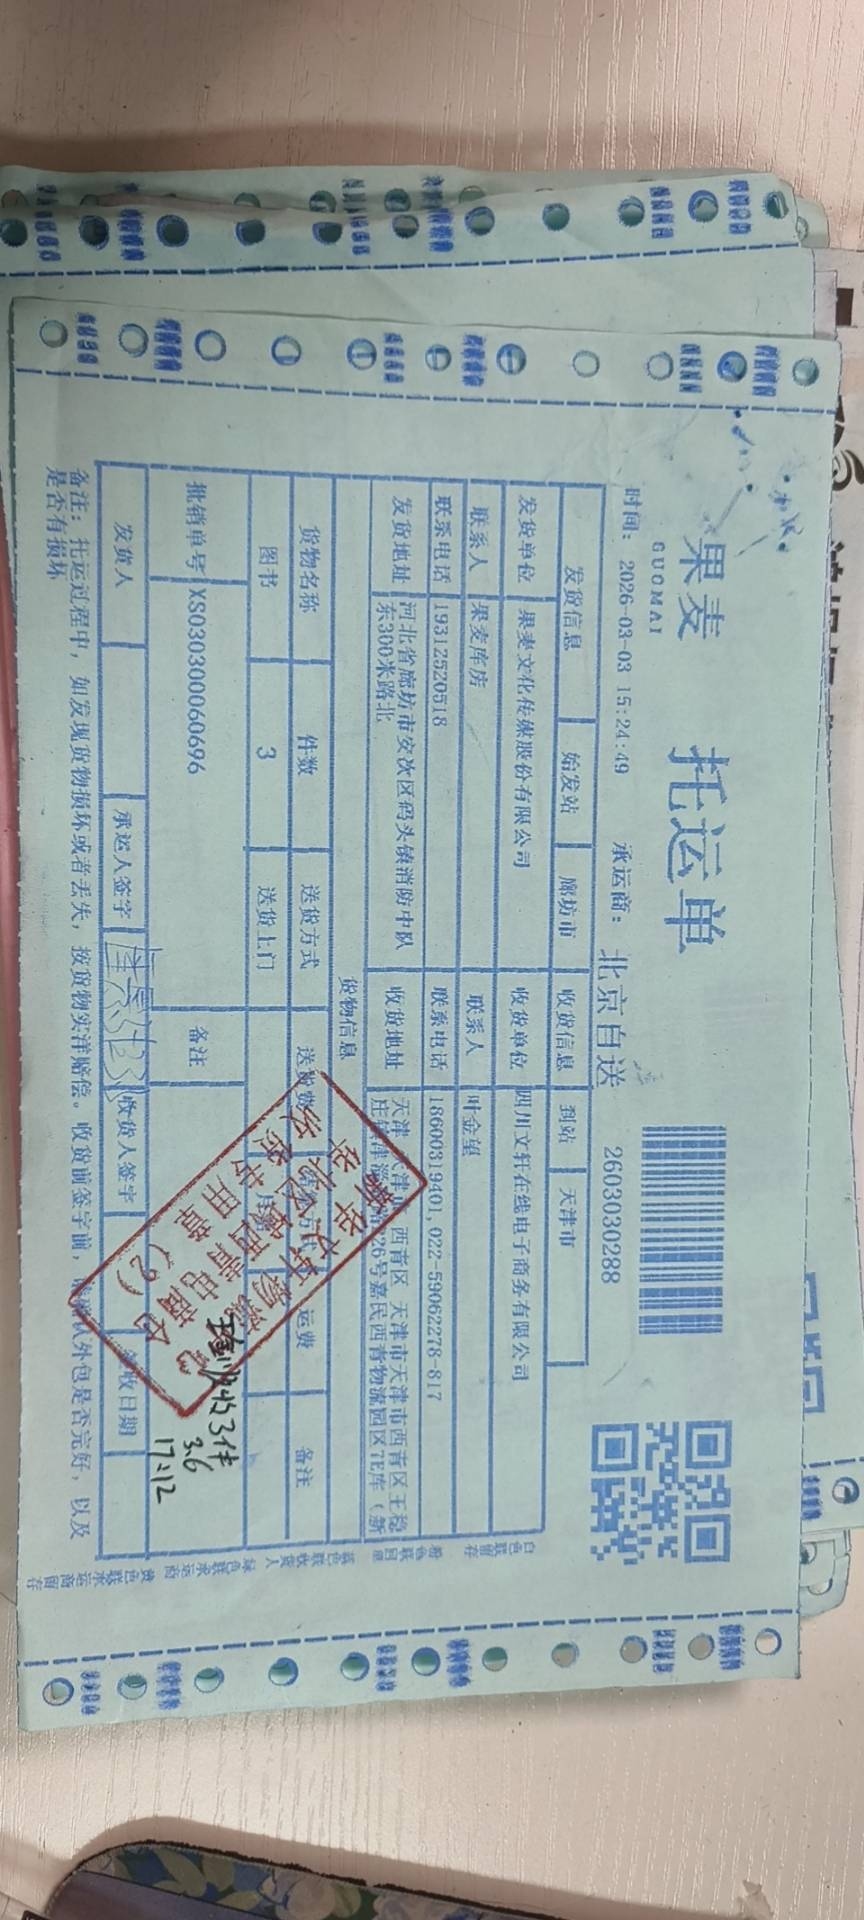 果麦 托运单
GUOMAI
时间: 2026-03-03 15:24:49 承运商: 北京自送 2603030288
发货信息 始发站 廊坊市 收货信息 到站 天津市
发货单位 果麦文化传媒股份有限公司 收货单位 四川文轩在线电子商务有限公司
联系人 果麦库房 联系人 叶金望
联系电话 19312520518 联系电话 18600319401, 022-59062278-817
发货地址 河北省廊坊市安次区码头镇消防中队 收货地址 天津 天津市 西青区 天津市天津市西青区王稳
东300米路北 庄镇津淄公路26号嘉民西青物流园区7E库（新
货物信息
货物名称 件数 送货方式 送货费 结算方式 运费 备注
图书 3 送货上门 月结
批销单号 XS030300060696 备注
发货人 承运人签字 收货人签字 签收日期
备注: 托运过程中, 如发现货物损坏或者丢失, 按货物实洋赔偿。收货前签字前, 请确认外包是否完好, 以及
是否有损坏
白色联留存 粉色联回单 蓝色联收货人 绿色联承运商 黄色联承运商留存
新华文轩物流
华北区域西青电商仓
收货专用章
(2)
实收3件
3.6
17:12